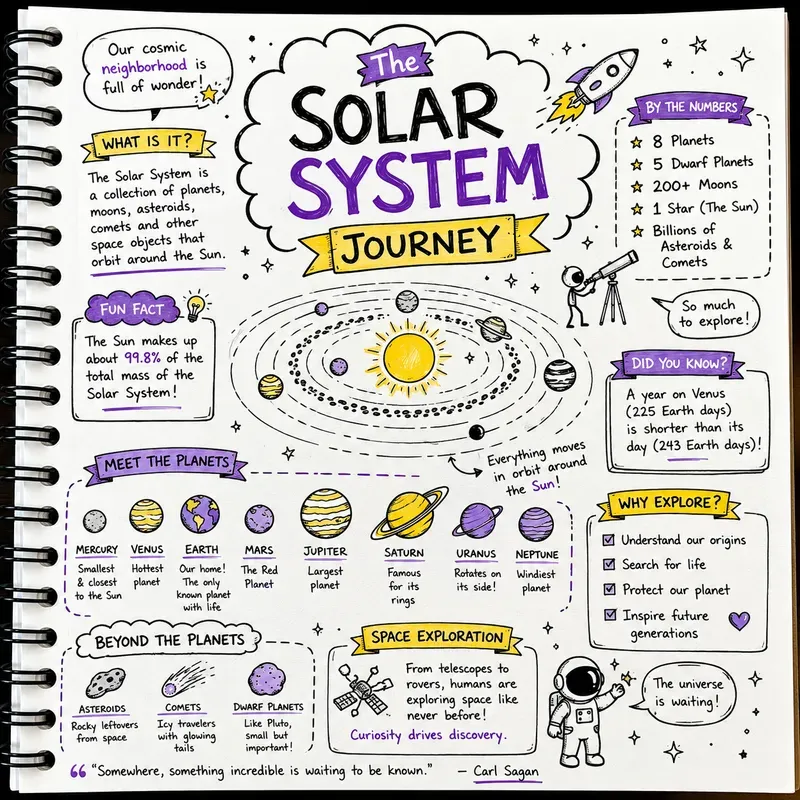 Our cosmic
neighborhood is
full of wonder!
The
SOLAR
SYSTEM
JOURNEY
WHAT IS IT?
The Solar System is
a collection of planets,
moons, asteroids,
comets and other
space objects that
orbit around the Sun.
BY THE NUMBERS
8 Planets
5 Dwarf Planets
200+ Moons
1 Star (The Sun)
Billions of
Asteroids &
Comets
FUN FACT
The Sun makes up
about 99.8% of the
total mass of the
Solar System!
So much
to explore!
DID YOU KNOW?
A year on Venus
(225 Earth days)
is shorter than its
day (243 Earth days)!
Everything moves
in orbit around
the Sun!
MEET THE PLANETS
MERCURY
Smallest
& closest
to the Sun
VENUS
Hottest
planet
EARTH
Our home!
The only
known planet
with life
MARS
The Red
Planet
JUPITER
Largest
planet
SATURN
Famous
for its
rings
URANUS
Rotates on
its side!
NEPTUNE
Windiest
planet
WHY EXPLORE?
Understand our origins
Search for life
Protect our planet
Inspire future
generations
BEYOND THE PLANETS
ASTEROIDS
Rocky leftovers
from space
COMETS
Icy travelers
with glowing
tails
DWARF PLANETS
Like Pluto,
small but
important!
SPACE EXPLORATION
From telescopes to
rovers, humans are
exploring space like
never before!
Curiosity drives discovery.
The universe
is waiting!
“ “Somewhere, something incredible is waiting to be known.” — Carl Sagan